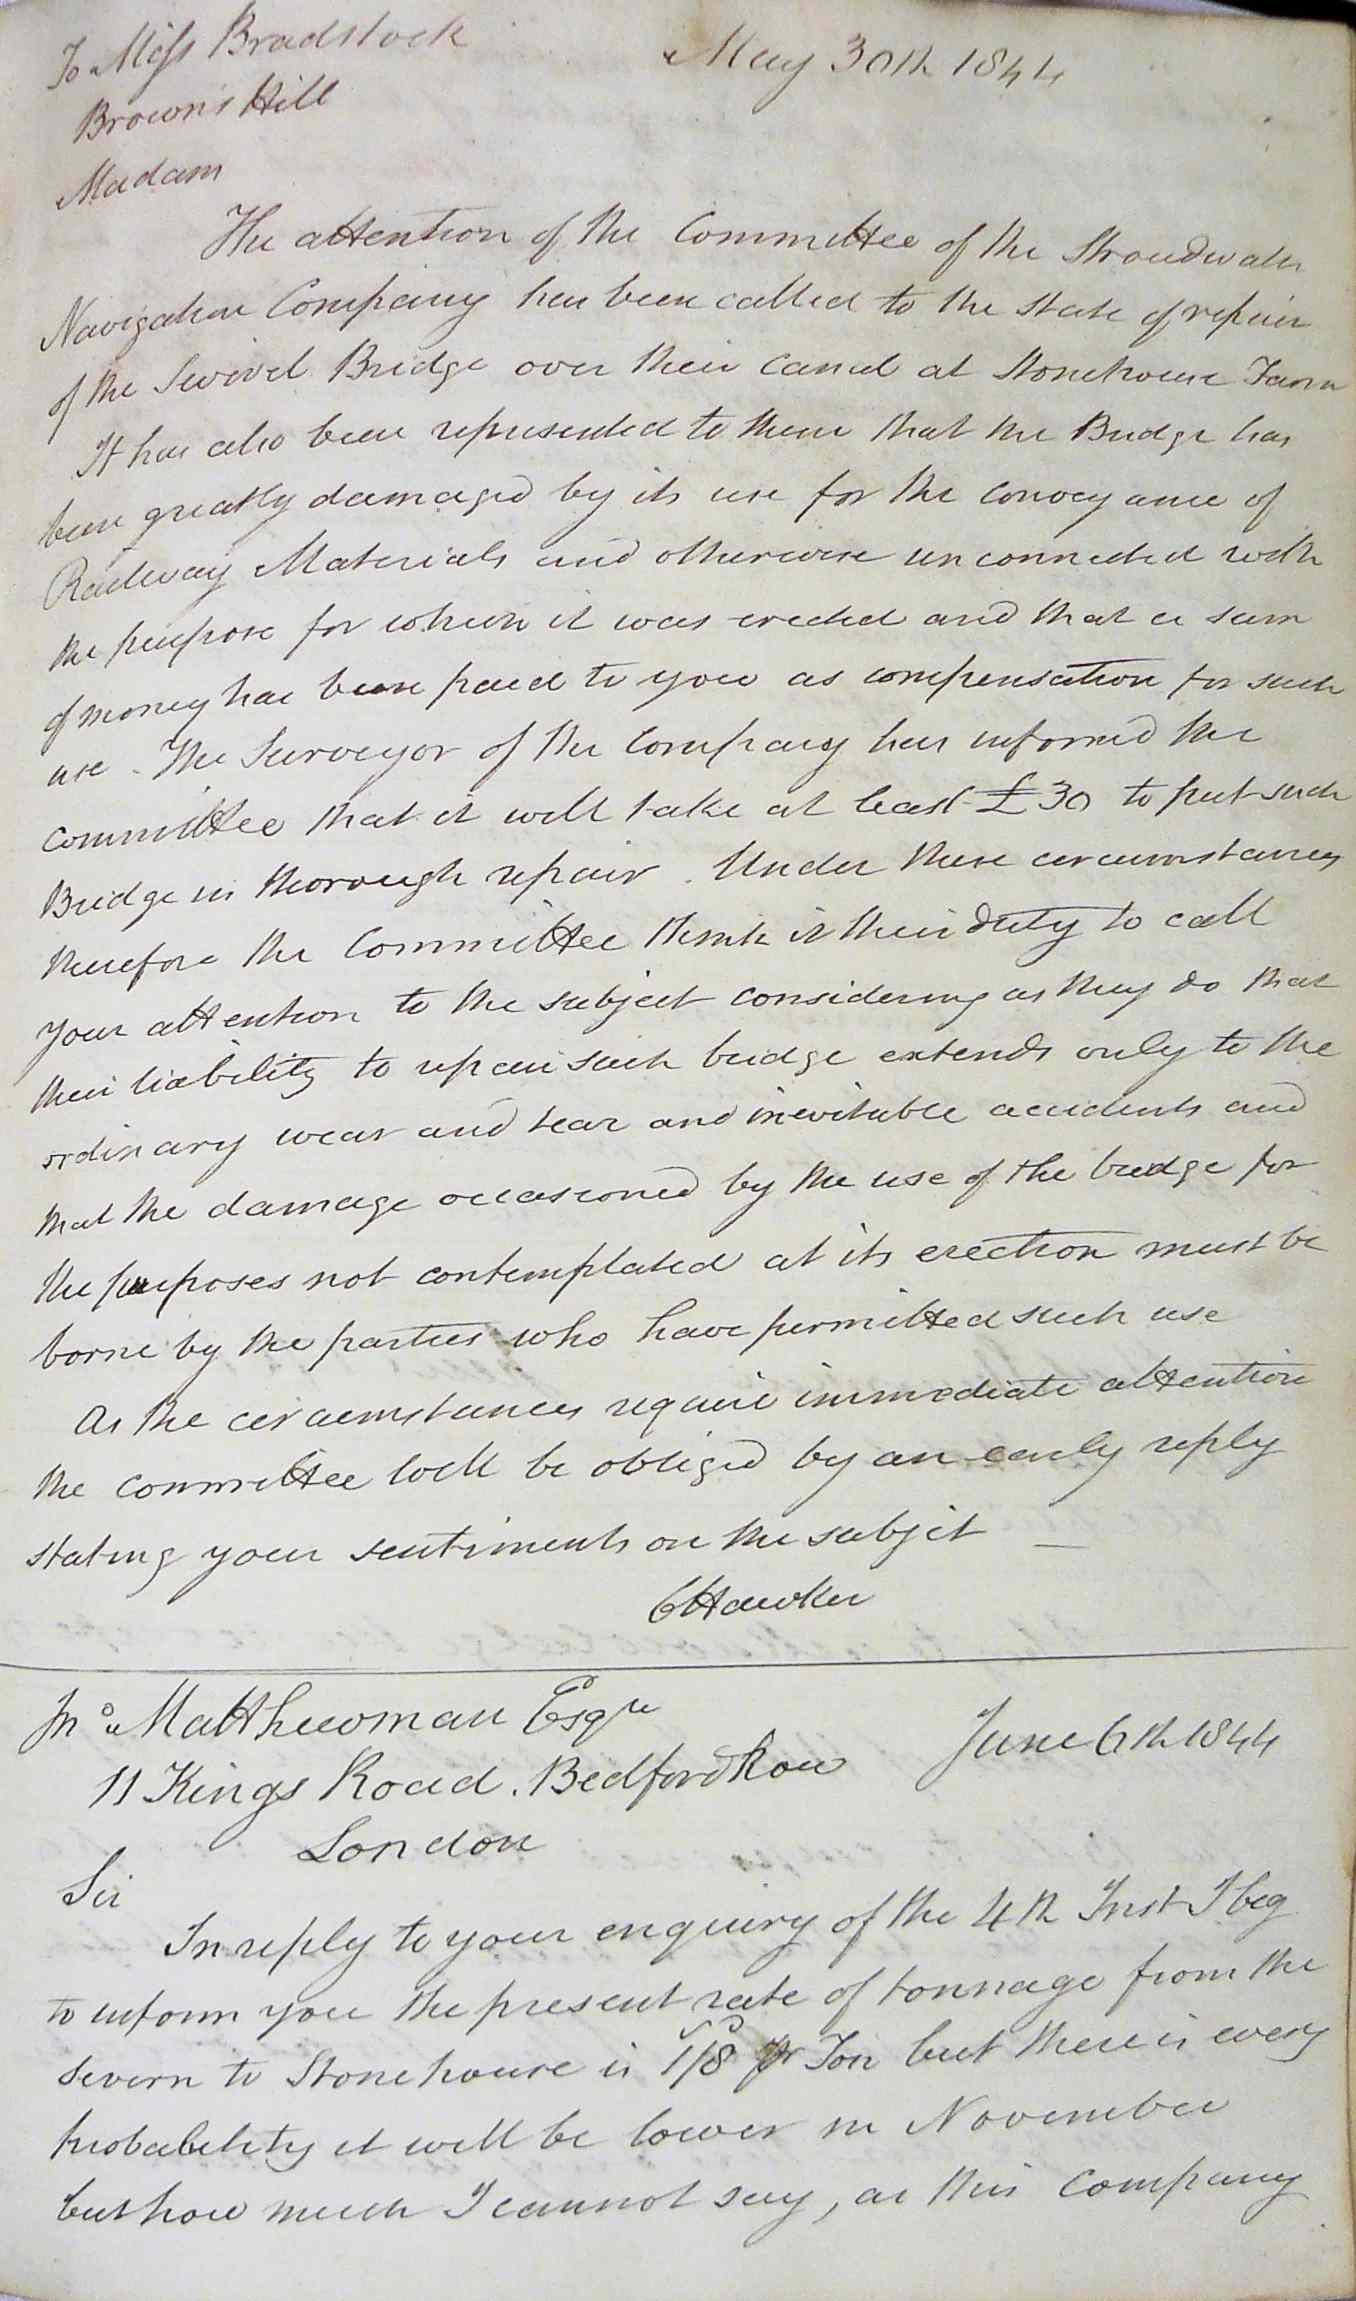 To Miss Bradstock
May 30th 1844
Brown's Hill
Madam
The attention of the Committee of the Stroudwater
Navigation Company has been called to the state of repair
of the Swivel Bridge over their Canal at Stonehouse Farm
It has also been represented to them that the Bridge has
been greatly damaged by its use for the conveyance of
Railway Materials and otherwise unconnected with
the purpose for which it was erected and that a sum
of money has been paid to you as compensation for such
use. The Surveyor of the Company has informed the
Committee that it will take at least £30 to put such
Bridge in thorough repair. Under these circumstances
therefore the Committee think it their duty to call
your attention to the subject considering as they do that
their liability to repair such bridge extends only to the
ordinary wear and tear and inevitable accidents and
that the damage occasioned by the use of the bridge for
the purposes not contemplated at its erection must be
borne by the parties who have permitted such use
As the circumstances require immediate attention
the committee will be obliged by an early reply
stating your sentiments on the subjet —
C Hawker
Jno Matthewman Esqre
June 6th 1844
11 Kings Road. Bedford Row
London
Sir
In reply to your enquiry of the 4th Inst I beg
to inform you the present rate of tonnage from the
Severn to Stonehouse is 1/8 pr Ton but there is every
probability it will be lower in November
but how much I cannot say, as this Company